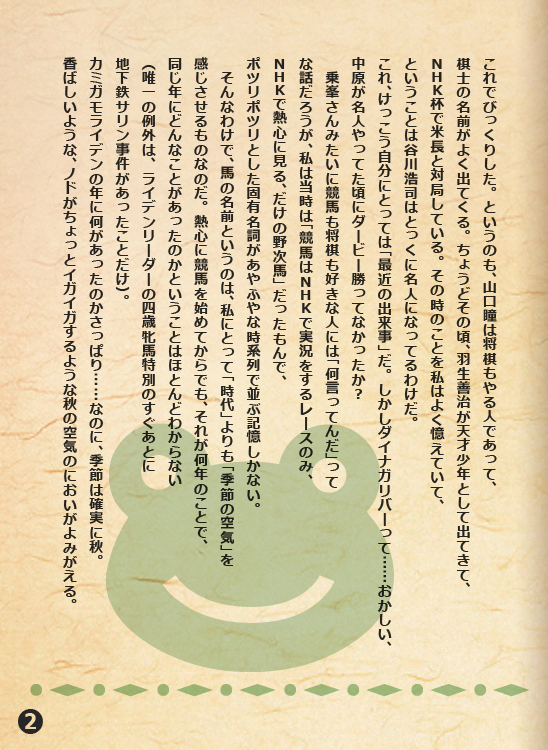 これでびっくりした。というのも、山口瞳は将棋もやる人であって、
棋士の名前がよく出てくる。ちょうどその頃、羽生善治が天才少年として出てきて、
NHK杯で米長と対局している。その時のことを私はよく憶えていて、
ということは谷川浩司はとっくに名人になってるわけだ。
これ、けっこう自分にとっては「最近の出来事」だ。しかしダイナガリバーって……おかしい、
中原が名人やってた頃にダービー勝ってなかったか？
乗峯さんみたいに競馬も将棋も好きな人には「何言ってんだ」って
な話だろうが、私は当時は「競馬はNHKで実況をするレースのみ、
NHKで熱心に見る、だけの野次馬」だったもんで、
ポツリポツリとした固有名詞があやふやな時系列で並ぶ記憶しかない。
そんなわけで、馬の名前というのは、私にとって「時代」よりも「季節の空気」を
感じさせるものなのだ。熱心に競馬を始めてからでも、それが何年のことで、
同じ年にどんなことがあったのかということはほとんどわからない
（唯一の例外は、ライデンリーダーの四歳牝馬特別のすぐあとに
地下鉄サリン事件があったことだけ）。
カミガモライデンの年に何があったのかさっぱり……なのに、季節は確実に秋。
香ばしいような、ノドがちょっとイガイガするような秋の空気のにおいがよみがえる。
2